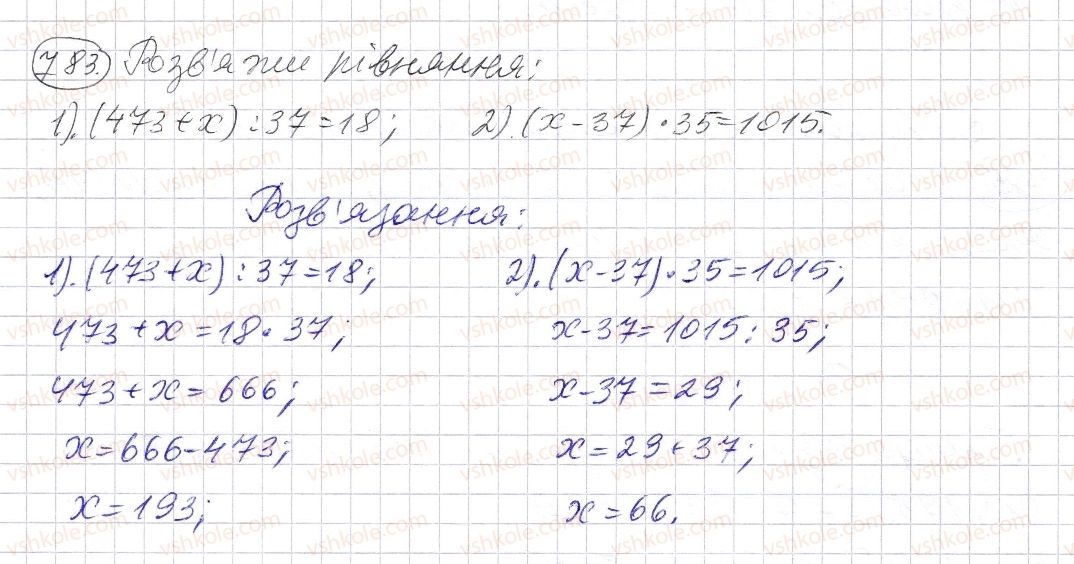 783. Розв'яжи рівняння:
1).(473+x):37=18; 2).(x-37)·35=1015.
Розв'язання:
1).(473+x):37=18; 2).(x-37)·35=1015;
473+x=18·37; x-37=1015:35;
473+x=666; x-37=29;
x=666-473; x=29+37;
x=193; x=66.